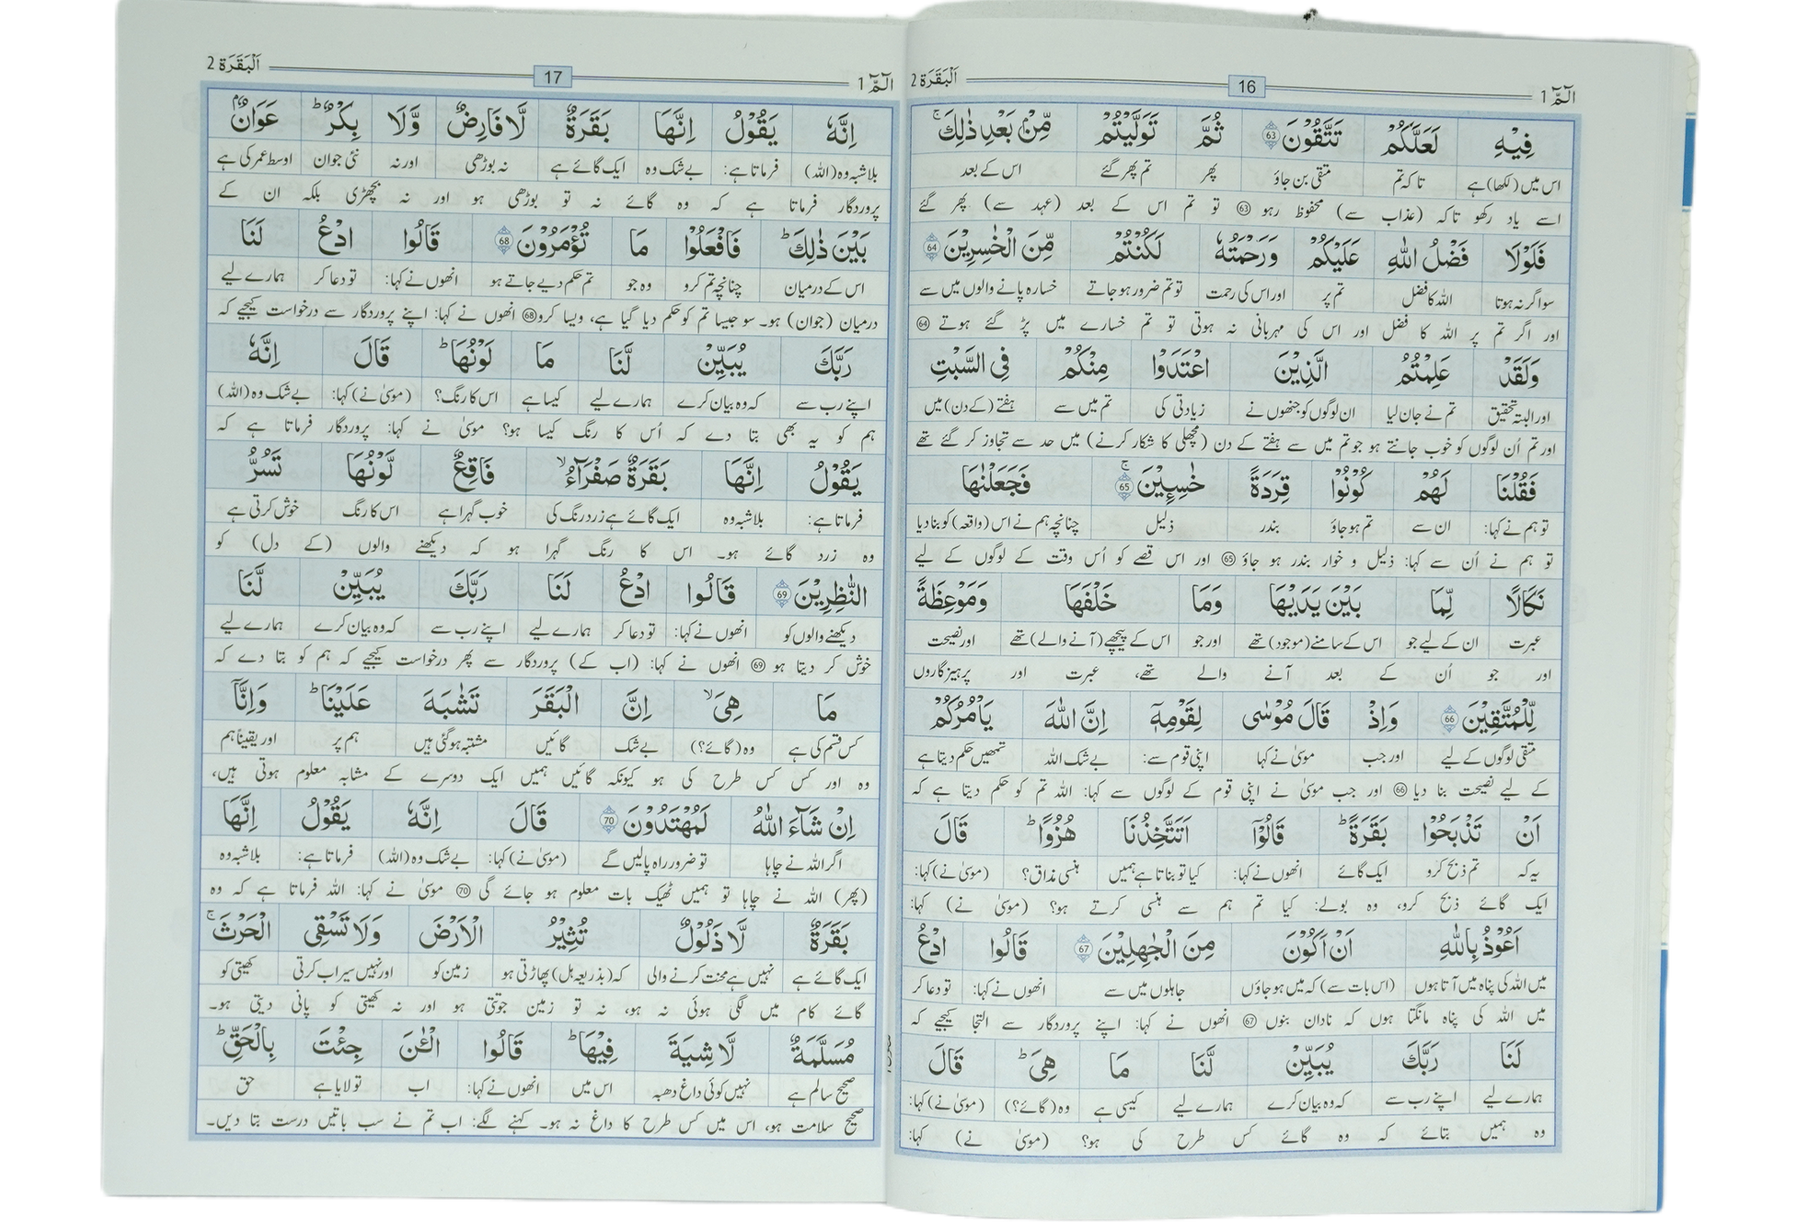 الٓمّٓ 1
16
اَلْبَقَرَة 2
فِيْهِ لَعَلَّكُمْ تَتَّقُوْنَ 63 ثُمَّ تَوَلَّيْتُمْ مِّنْۢ بَعْدِ ذٰلِكَ ۚ
اس میں (لکھا) ہے تا کہ تم متقی بن جاؤ پھر تم پھر گئے اس کے بعد
اسے یاد رکھو تاکہ (عذاب سے) محفوظ رہو 63 تو تم اس کے بعد (عہد سے) پھر گئے
فَلَوْلَا فَضْلُ اللّٰهِ عَلَيْكُمْ وَرَحْمَتُهٗ لَكُنْتُمْ مِّنَ الْخٰسِرِيْنَ 64
سو اگر نہ ہوتا اللہ کا فضل تم پر اور اس کی رحمت تو تم ضرور ہو جاتے خسارہ پانے والوں میں سے
اور اگر تم پر اللہ کا فضل اور اس کی مہربانی نہ ہوتی تو تم خسارے میں پڑ گئے ہوتے 64
وَلَقَدْ عَلِمْتُمُ الَّذِيْنَ اعْتَدَوْا مِنْكُمْ فِى السَّبْتِ
اور البتہ تحقیق تم نے جان لیا ان لوگوں کو جنھوں نے زیادتی کی تم میں سے ہفتے (کے دن) میں
اور تم اُن لوگوں کو خوب جانتے ہو جو تم میں سے ہفتے کے دن (مچھلی کا شکار کرنے) میں حد سے تجاوز کر گئے تھے
فَقُلْنَا لَهُمْ كُوْنُوْا قِرَدَةً خٰسِـِٕيْنَ ۚ 65 فَجَعَلْنٰهَا
تو ہم نے کہا: ان سے تم ہو جاؤ بندر ذلیل چنانچہ ہم نے اس (واقعہ) کو بنا دیا
تو ہم نے اُن سے کہا: ذلیل و خوار بندر ہو جاؤ 65 اور اس قصے کو اُس وقت کے لوگوں کے لیے
نَكَالًا لِّمَا بَيْنَ يَدَيْهَا وَمَا خَلْفَهَا وَمَوْعِظَةً
عبرت ان کے لیے جو اس کے سامنے (موجود) تھے اور جو اس کے پیچھے (آنے والے) تھے اور نصیحت
اور جو اُن کے بعد آنے والے تھے، عبرت اور پرہیزگاروں
لِّلْمُتَّقِيْنَ 66 وَاِذْ قَالَ مُوْسٰى لِقَوْمِهٖٓ اِنَّ اللّٰهَ يَاْمُرُكُمْ
متقی لوگوں کے لیے اور جب موسیٰ نے کہا اپنی قوم سے: بے شک اللہ تمھیں حکم دیتا ہے
کے لیے نصیحت بنا دیا 66 اور جب موسیٰ نے اپنی قوم کے لوگوں سے کہا: اللہ تم کو حکم دیتا ہے کہ
اَنْ تَذْبَحُوْا بَقَرَةً ؕ قَالُوْٓا اَتَتَّخِذُنَا هُزُوًا ؕ قَالَ
یہ کہ تم ذبح کرو ایک گائے انھوں نے کہا: کیا تو بناتا ہے ہمیں ہنسی مذاق؟ (موسیٰ نے) کہا:
ایک گائے ذبح کرو، وہ بولے: کیا تم ہم سے ہنسی کرتے ہو؟ (موسیٰ نے) کہا:
اَعُوْذُ بِاللّٰهِ اَنْ اَكُوْنَ مِنَ الْجٰهِلِيْنَ 67 قَالُوا ادْعُ
میں اللہ کی پناہ میں آتا ہوں (اس بات سے) کہ میں ہو جاؤں جاہلوں میں سے انھوں نے کہا: تو دعا کر
میں اللہ کی پناہ مانگتا ہوں کہ نادان بنوں 67 انھوں نے کہا: اپنے پروردگار سے التجا کیجیے کہ
لَنَا رَبَّكَ يُبَيِّنْ لَّنَا مَا هِىَ ؕ قَالَ
ہمارے لیے اپنے رب سے کہ وہ بیان کرے ہمارے لیے کیسی ہے وہ (گائے؟) (موسیٰ نے) کہا:
وہ ہمیں بتائے کہ وہ گائے کس طرح کی ہو؟ (موسیٰ نے) کہا:
الٓمّٓ 1
17
اَلْبَقَرَة 2
اِنَّهٗ يَقُوْلُ اِنَّهَا بَقَرَةٌ لَّا فَارِضٌ وَّلَا بِكْرٌ ؕ عَوَانٌۢ
بلاشبہ وہ (اللہ) فرماتا ہے: بے شک وہ ایک گائے ہے نہ بوڑھی اور نہ نئی جوان اوسط عمر کی ہے
پروردگار فرماتا ہے کہ وہ گائے نہ تو بوڑھی ہو اور نہ بچھڑی بلکہ ان کے
بَيْنَ ذٰلِكَ ؕ فَافْعَلُوْا مَا تُؤْمَرُوْنَ 68 قَالُوا ادْعُ لَنَا
اس کے درمیان چنانچہ تم کرو وہ جو تم حکم دیے جاتے ہو انھوں نے کہا: تو دعا کر ہمارے لیے
درمیان (جوان) ہو۔ سو جیسا تم کو حکم دیا گیا ہے، ویسا کرو 68 انھوں نے کہا: اپنے پروردگار سے درخواست کیجیے کہ
رَبَّكَ يُبَيِّنْ لَّنَا مَا لَوْنُهَا ؕ قَالَ اِنَّهٗ
اپنے رب سے کہ وہ بیان کرے ہمارے لیے کیسا ہے اس کا رنگ؟ (موسیٰ نے) کہا: بے شک وہ (اللہ)
ہم کو یہ بھی بتا دے کہ اُس کا رنگ کیسا ہو؟ موسیٰ نے کہا: پروردگار فرماتا ہے کہ
يَقُوْلُ اِنَّهَا بَقَرَةٌ صَفْرَآءُ ۙ فَاقِعٌ لَّوْنُهَا تَسُرُّ
فرماتا ہے: بلاشبہ وہ ایک گائے ہے زرد رنگ کی خوب گہرا ہے اس کا رنگ خوش کرتی ہے
وہ زرد گائے ہو۔ اس کا رنگ گہرا ہو کہ دیکھنے والوں (کے دل) کو
النّٰظِرِيْنَ 69 قَالُوا ادْعُ لَنَا رَبَّكَ يُبَيِّنْ لَّنَا
دیکھنے والوں کو انھوں نے کہا: تو دعا کر ہمارے لیے اپنے رب سے کہ وہ بیان کرے ہمارے لیے
خوش کر دیتا ہو 69 انھوں نے کہا: (اب کے) پروردگار سے پھر درخواست کیجیے کہ ہم کو بتا دے کہ
مَا هِىَ ۙ اِنَّ الْبَقَرَ تَشٰبَهَ عَلَيْنَا ؕ وَاِنَّآ
کس قسم کی ہے وہ (گائے؟) بے شک گائیں مشتبہ ہو گئی ہیں ہم پر اور یقیناً ہم
وہ اور کس کس طرح کی ہو کیونکہ گائیں ہمیں ایک دوسرے کے مشابہ معلوم ہوتی ہیں،
اِنْ شَآءَ اللّٰهُ لَمُهْتَدُوْنَ 70 قَالَ اِنَّهٗ يَقُوْلُ اِنَّهَا
اگر اللہ نے چاہا تو ضرور راہ پالیں گے (موسیٰ نے) کہا: بے شک وہ (اللہ) فرماتا ہے: بلاشبہ وہ
(پھر) اللہ نے چاہا تو ہمیں ٹھیک بات معلوم ہو جائے گی 70 موسیٰ نے کہا: اللہ فرماتا ہے کہ وہ
بَقَرَةٌ لَّا ذَلُوْلٌ تُثِيْرُ الْاَرْضَ وَلَا تَسْقِى الْحَرْثَ ۚ
ایک گائے ہے نہیں ہے محنت کرنے والی کہ (بذریعہ ہل) پھاڑتی ہو زمین کو اور نہیں سیراب کرتی کھیتی کو
گائے کام میں لگی ہوئی نہ ہو، نہ تو زمین جوتتی ہو اور نہ کھیتی کو پانی دیتی ہو۔
مُسَلَّمَةٌ لَّا شِيَةَ فِيْهَا ؕ قَالُوا الْـٰٔنَ جِئْتَ بِالْحَقِّ ؕ
صحیح سالم ہے نہیں کوئی داغ دھبہ اس میں انھوں نے کہا: اب تو لایا ہے حق
صحیح سلامت ہو، اس میں کس طرح کا داغ نہ ہو۔ کہنے لگے: اب تم نے سب باتیں درست بتا دیں۔